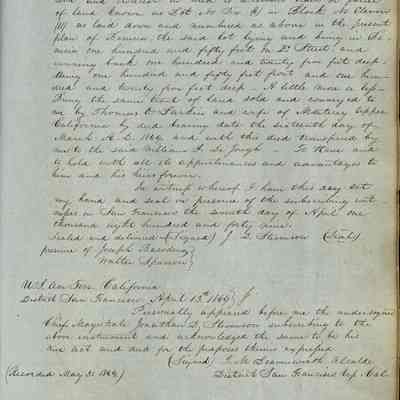 of land known as Lot No Six (6) in Block No Eleven
(11) as laid down and numbered as above in the present
plan of Benicia the said lot lying and being in Be-
nicia one hundred and fifty feet on D Street and
running back one hundred and twenty five feet deep
Being one hundred and fifty feet front and one hun-
dred and twenty five feet deep - A little more or less
Being the same tract of land sold and conveyed to
me by Thomas O. Larkin and wife of Monterey Upper
California by deed bearing date the sixteenth day of
March A. D. 1849 and with this deed transferred by
me to the said William S. De Jongh - To Have and
to hold with all its appurtenances and advantages to
him and his heirs forever.
In witness whereof I have this day set
my hand and seal in presence of the subscribing wit-
nesses in San Francisco the seventh day of April one
thousand eight hundred and forty nine.
Sealed and delivered (Signed) J. D. Stevenson (Seal)
presence of Joseph
Walter
U. S. Am Terr. California
District San Francisco April 13th 1849
Personally appeared before me the undersigned
Chief Magistrate Jonathan D. Stevenson subscribing to the
above instrument and acknowledged the same to be his
own act and deed for the purposes therein expressed
(Signed) T. M. Leavenworth Alcalde
(Recorded May 31 1849) District San Francisco Up. Cal.